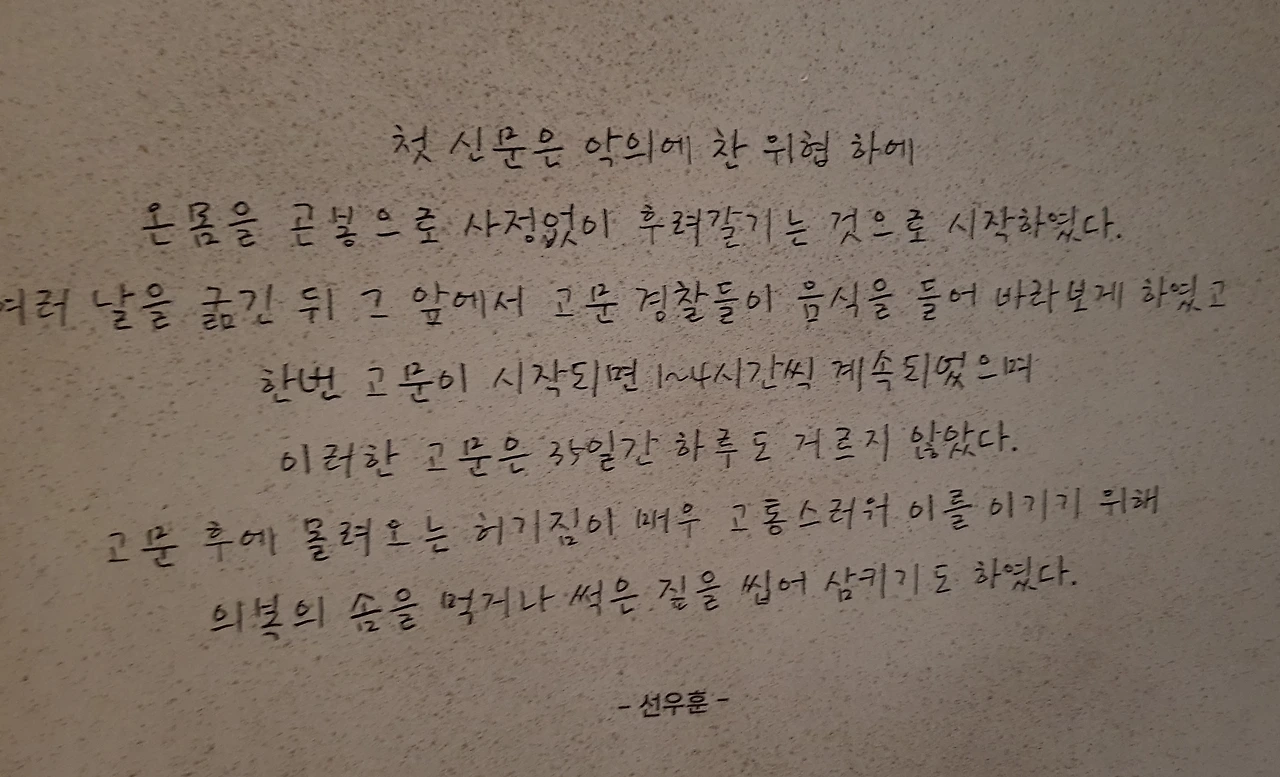 첫 신문은 악의에 찬 위협 하에
온몸을 곤봉으로 사정없이 후려갈기는 것으로 시작하였다.
여러 날을 굶긴 뒤 그 앞에서 고문 경찰들이 음식을 들어 바라보게 하였고
한번 고문이 시작되면 1~4시간씩 계속되었으며
이러한 고문은 35일간 하루도 거르지 않았다.
고문 후에 몰려오는 허기짐이 매우 고통스러워 이를 이기기 위해
의복의 솜을 먹거나 썩은 짚을 씹어 삼키기도 하였다.
- 선우훈 -